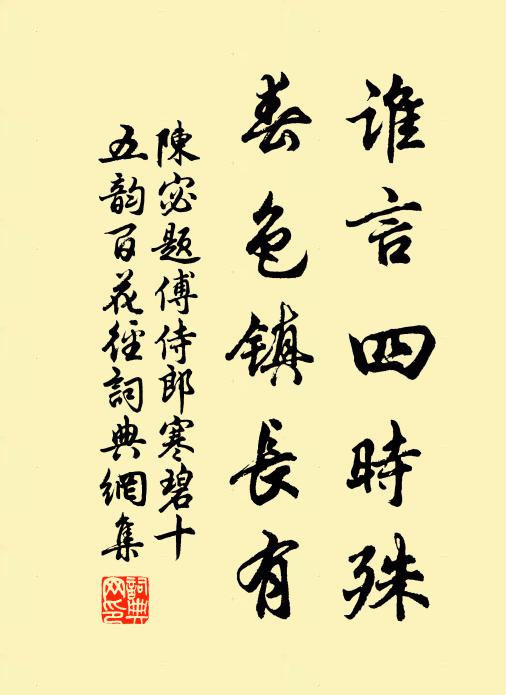 誰言四時殊
春色鎮長有
陳宓題傅侍郎寒碧十
五韵百花徑詞典網集
詞典网印